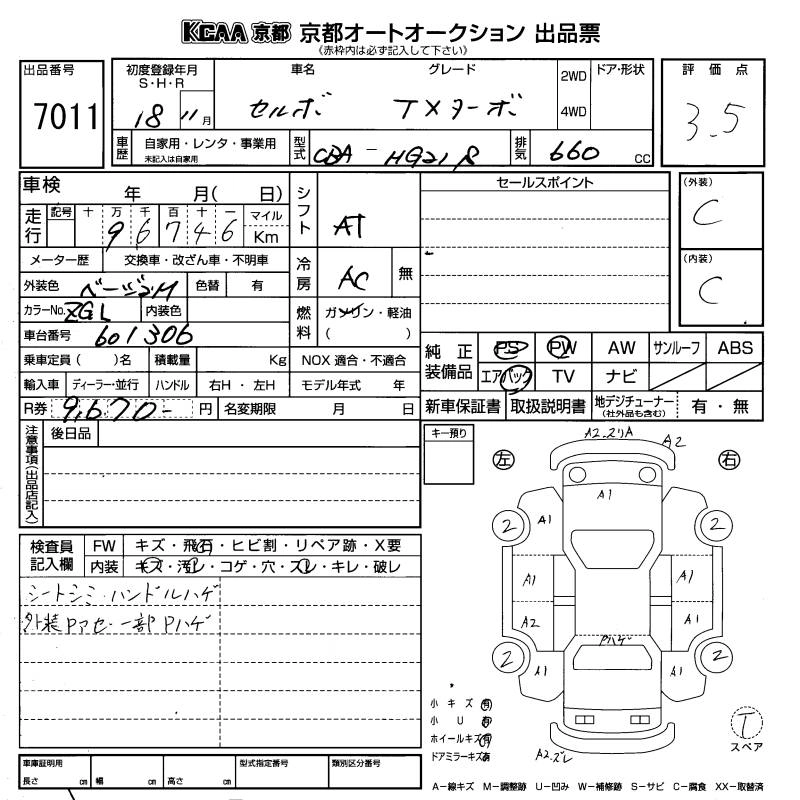 KCAA 京都 京都オートオークション 出品票
(赤枠内は必ず記入して下さい)
出品番号
7011
初度登録年月
S・H・R
18 11月
車名
セルボ
グレード
TXターボ
2WD
4WD
ドア・形状
評価点
3.5
車歴
自家用・レンタ・事業用
未記入は自家用
型式
CBA-HG21S
排気
660 CC
車検 年 月( 日)
走行
記号 十 万 千 百 十 一
96746
マイル
Km
シフト
AT
メーター歴 交換車・改ざん車・不明車
冷房
AC 無
外装色 ベージュM 色替 有
カラーNo. ZGL 内装色
燃料
ガソリン・軽油
( )
車台番号 601306
乗車定員 ( )名 積載量 Kg NOX 適合・不適合
輸入車 ディーラー・並行 ハンドル 右H・左H モデル年式 年
R券 9,670- 円 名変期限 月 日
セールスポイント
(外装)
C
(内装)
C
純正装備品
PS PW AW サンルーフ ABS
エアバック TV ナビ
新車保証書 取扱説明書 地デジチューナー(社外品も含む) 有・無
注意事項(出品店記入)
後日品
キー預り
検査員記入欄
FW キズ・飛石・ヒビ割・リペア跡・X要
内装 キズ・汚レ・コゲ・穴・スレ・キレ・破レ
シートシミ・ハンドルハゲ
外装Pアセ・一部Pハゲ
左 右
A2.スリA
A2
A1
2 A1 2
A1 A1
A2 A1
Pハゲ
2 A1 A1 2
A2.ズレ
小キズ 有
小U 有
ホイールキズ 有
ドアミラーキズ 有
T
スペア
車庫証明用
長さ cm 幅 cm 高さ cm
型式指定番号
類別区分番号
A−線キズ M−調整跡 U−凹み W−補修跡 S−サビ C−腐食 XX−取替済